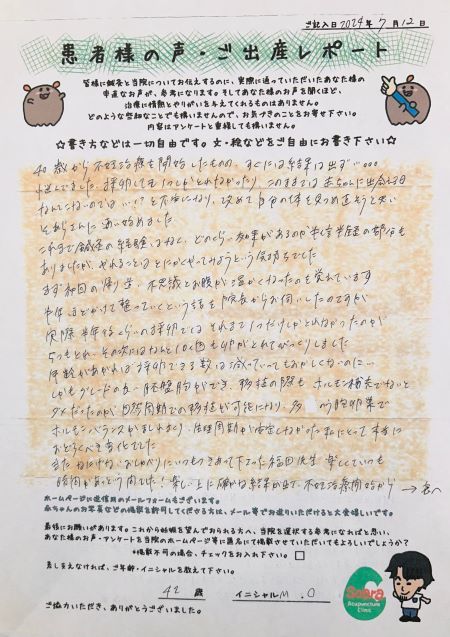 ご記入日 2024年 7月 12日
患者様の声・ご出産レポート
皆様に鍼灸と当院についてお伝えするのに、実際に通っていただいたあなた様の
率直なお声が、参考になります。そしてあなた様のお声を聞くほど、
治療に情熱とやりがいを与えてくれるものはありません。
どのような些細なことでも構いませんので、お気づきのことをお寄せ下さい。
内容はアンケートと重複しても構いません。
☆書き方などは一切自由です。文・絵などをご自由にお書き下さい☆
40歳から不妊治療を開始したものの、すぐには結果は出ず...
採卵しても1つしかとれなかったり、このままでは赤ちゃんに出会える日
なんてこないのでは...!? と不安になり、改めて自分の体を見つめ直そうと思い
そあらさんに通い始めました
これまで鍼灸の経験はなく、どのくらい効果があるのか半信半疑の部分も
ありましたが、やれることはとにかくやってみようという気持ちでした
まず初回の帰り道、不思議とお腹が温かくなったのを覚えています
半年ほどかけて整っていくという話を院長からお伺いしたのですが
実際半年後くらいの採卵では それまで1つだけしかとれなかったのが
5つもとれ、その次にはなんと10個も卵がとれてびっくりしました
年齢があがれば採卵できる数は減っていってもおかしくないのに...
しかもグレードの良い胚盤胞ができ、移植の際も ホルモン補充でないと
ダメだったのが 自然周期での移植が可能になり、多 卵巣で
ホルモンバランスがみだれまくり、生理周期が安定しなかった私にとって本当に
おどろくべき変化でした
またはりだけでなく、おしゃべりにいつもつきあって下さった福田先生 楽しくていつも
時間があっという間でした! 楽しい上に確かな結果が出て、不妊治療開始から →裏へ
ホームページに返信用のメールフォームもございます。
赤ちゃんのお写真などの掲載を許可してくださる方は、メール等でお送りいただけると大変嬉しいです。
最後にお願いがあります。これから妊娠を望んでおられる方へ、当院を選択する参考になればと思い、
あなた様のお声・アンケートを当院のホームページ等に匿名にて掲載させていただいてもよろしいでしょうか？
*掲載不可の場合、チェックをお入れ下さい。□
差し支えなければ、ご年齢・イニシャルを教えて下さい。
42 歳 イニシャル M.O
ご協力いただき、ありがとうございました。
Soara
Acupuncture
Clinic